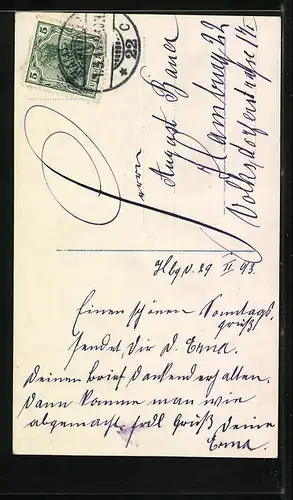 Herrn
August Bauer
Hamburg 22
Volksdorferstrasse
Hbg d. 29 II 93.
Einen schönen Sonntags-
gruß
sendet Dir D. Erna.
Deinen Brief dankend erhalten.
Dann komme man wie
abgemacht. Gruß Deine
Erna.
5 5
* 22 C